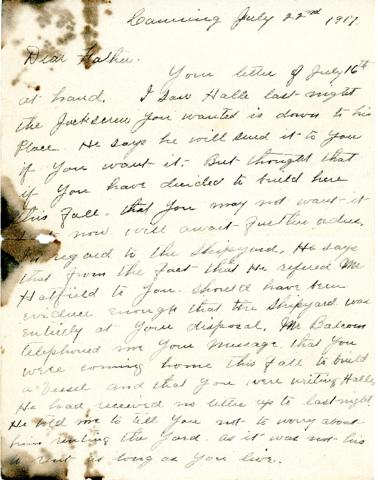 Canning July 22nd 1917.
Dear Father.
Your letter of July 16th
at hand. I saw Halle last night
the Jackscrew you wanted is down to his
Place. He says he will send it to you
if you want it. But thought that
if you have decided to build here
this Fall. that you may not want it
now will await further advice.
regard to the Shipyard. He says
that from the fact that He refered Mr
Hatfield to you. should have been
evidence enough that the Shipyard was
entirely at your disposal. Mr Balcom
telephoned me your message that you
were coming home this Fall to build
a vessel and that you were writing Halle.
He had received no letter up to last night.
He told me to tell you not to worry about
him renting the yard. as it was not his
to rent as long as you live.